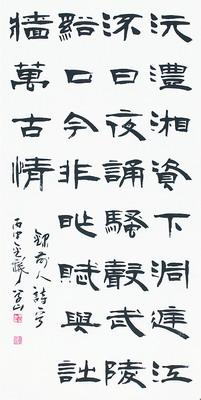 沅澧湘資下洞庭江
流日夜誦騷聲武陵
谿口今非昨賦與詩
牆萬古情
錄前人詩
丙申